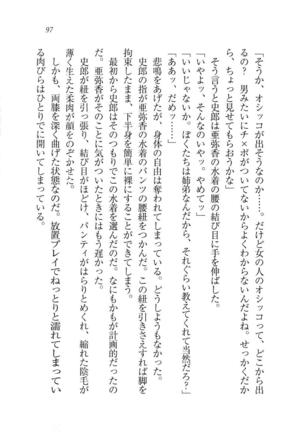 97
「そうか、オシッコが出そうなのか……。だけど女の人のオシッコって、どこから出
るの？　男みたいにチ×ポがついてないからよくわからないんだよね。せっかくだか
ら、ちょっと見せてもらおうかな」
そう言うと史郎は亜弥香の水着の腰の結び目に手を伸ばした。
「いやよッ。そんなのいや。やめてッ」
「いいじゃないか。ぼくたちは姉弟なんだから、それぐらい教えてくれて当然だろ？」
「ああッ、だめッ……」
悲鳴をあげようが、身体の自由は奪われてしまっている。
史郎の指が亜弥香の水着のパンツの腰紐をつかんだ。この紐を引きさえすれば脚を
拘束したまま、下半身を簡単に裸にすることができてしまう。
最初から史郎はそのつもりでこの水着を選んだのだ。なにもかもが計画的だったの
だ。亜弥香がそのことに気がついたときにはもう遅かった。
史郎が紐を引っ張り、結び目がほどけ、パンティがはらりとめくれ、縮れた陰毛が
薄く生えた柔肉が顔をのぞかせた。
両膝を深く曲げた状態なのだ。放置プレイでねっとりと濡れてしまってい
る肉びらはひとりでに開いてしまっている。